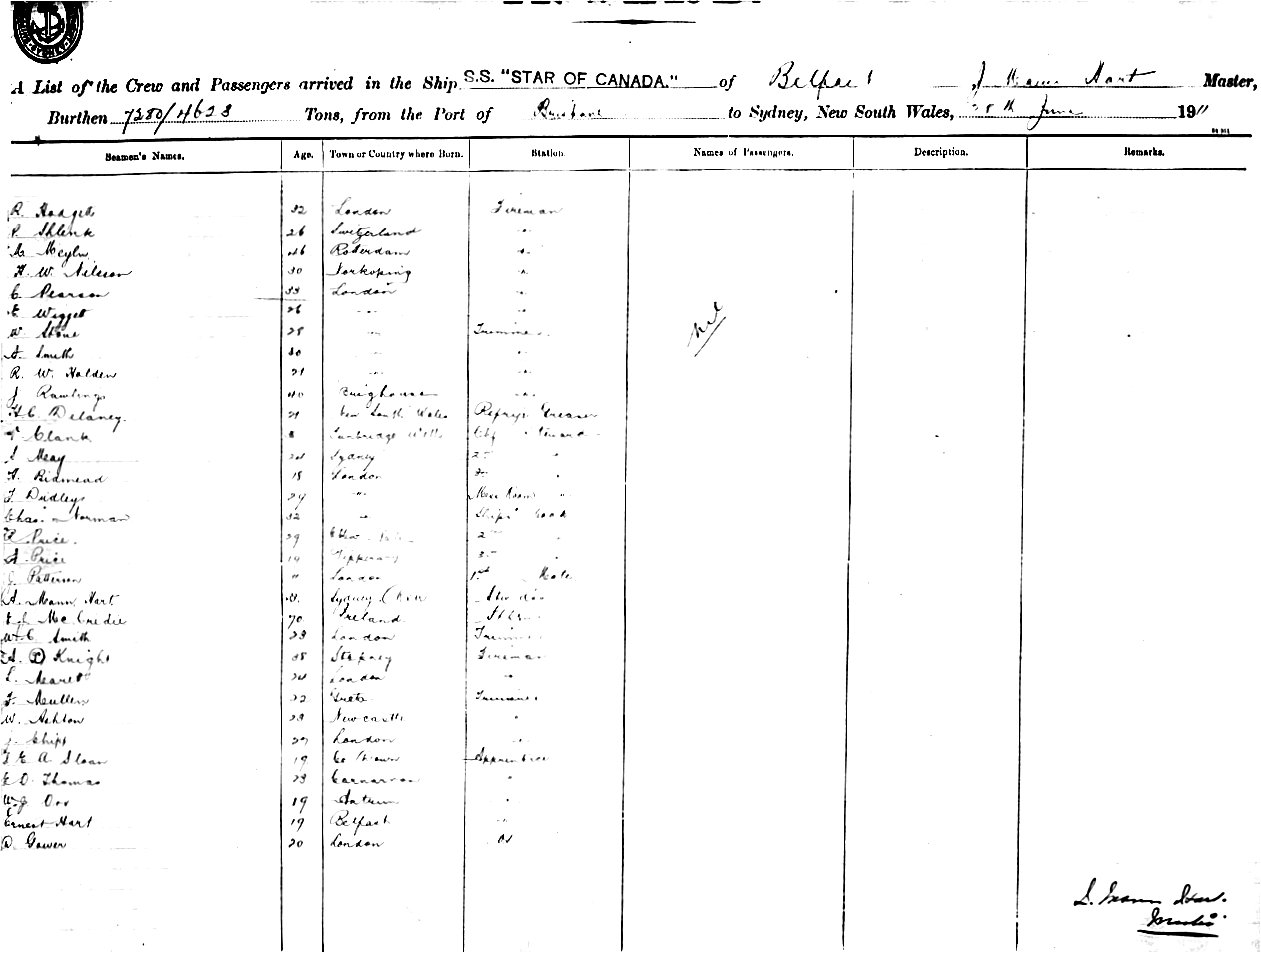 A List of the Crew and Passengers arrived in the Ship S.S. "STAR OF CANADA." of Belfast Hart Master,
Burthen 7280/4623 Tons, from the Port of Brisbane to Sydney, New South Wales, 28th June 1911
Seamen's Names. Age. Town or Country where Born. Station Names of Passengers. Description. Remarks.
R. Hodgett 32 London Fireman
P. Shlenk 26 Switzerland "
Meyln 46 Roterdam "
H. W. Nilsson 30 Norkoping "
C. Pearson 33 London "
E. Wiggett 26 " "
W. Stone 28 " Trimmer
A. Smith 30 " "
R. W. Holden 21 " "
J. Rawlings 40 Brighouse "
H. C. Delaney. 21 New South Wales Refrigr Greaser
Clark Tunbridge Wells Chf Steward
S. Meay 24 Sydney 2nd "
H. Bidmead 18 London "
T. Dudley 24 " Mess Room "
Chas. Norman 32 " Ships Cook
R. Price. 29 2nd "
A. Price 19 Tipperary "
J. Patterson London 1st Mate
A. Mann Hart Sydney Stewdss
Mc Credie 70 Ireland
W. C. Smith 23 London Trimmer
A. D Knight 38 Stepney Fireman
L. 24 London "
F. Mullen 22 Trimmer
W. Ashton 23 Newcastle "
J. Chipt 27 London "
T. E. A. Sloan 19 Co Down Apprentice
E. O. Thomas 23 Carnarvon "
W. J. Orr 19 Antrim "
Ernest Hart 19 Belfast "
D. Gower 20 London OS
Nil